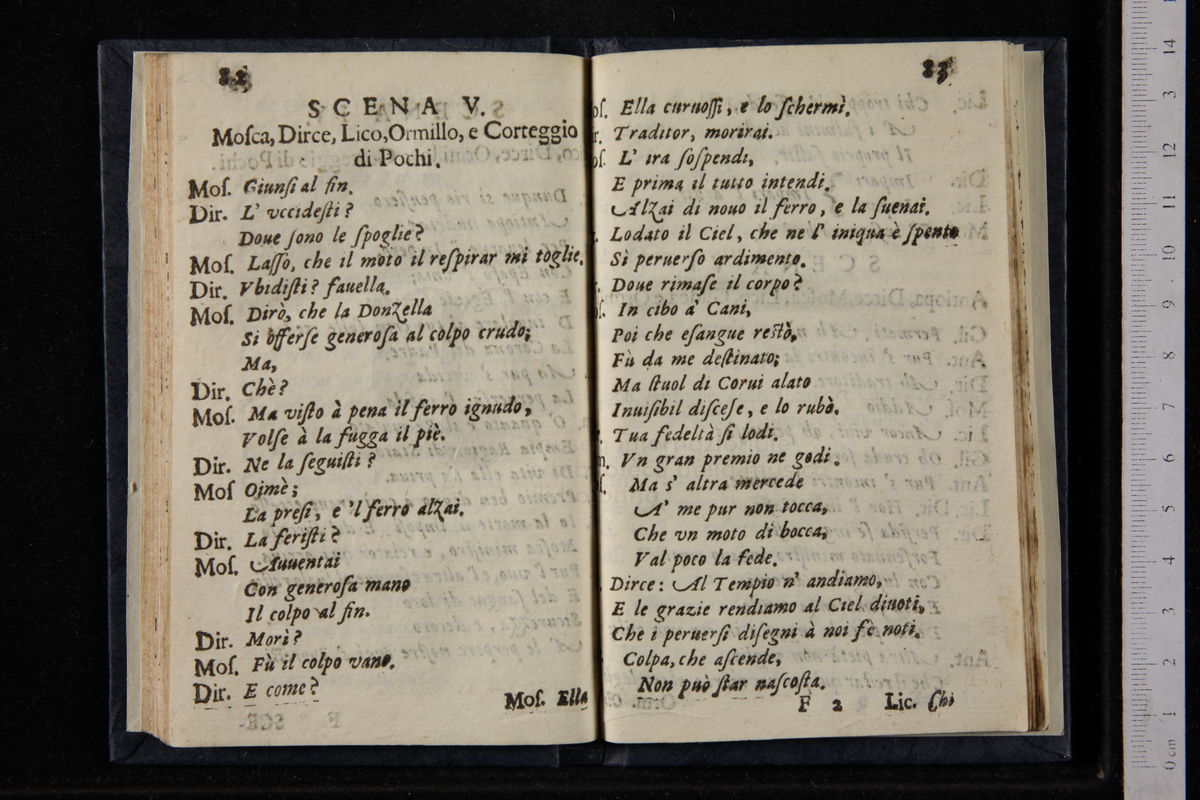 82
SCENA V.
Moſca, Dirce, Lico, Ormillo, e Corteggio
di Pochi.
Moſ. Giunſi al fin.
Dir. L' vccideſti?
Doue ſono le ſpoglie?
Moſ. Laſſo, che il moto il reſpirar mi toglie.
Dir. Vbidiſti? fauella.
Moſ. Dirò, che la Donzella
Si offerſe generoſa al colpo crudo;
Ma,
Dir. Chè?
Moſ. Ma viſto à pena il ferro ignudo,
Volſe à la fugga il piè.
Dir. Ne la ſeguiſti?
Moſ Oimè;
La preſi, e 'l ferro alzai.
Dir. La feriſti?
Moſ. Auuentai
Con generoſa mano
Il colpo al fin.
Dir. Morì?
Moſ. Fù il colpo vano.
Dir. E come?
Moſ. Ella
83
oſ. Ella curuoſſi, e lo ſchermì.
r. Traditor, morirai.
oſ. L' ira ſoſpendi,
E prima il tutto intendi.
Alzai di nouo il ferro, e la ſuenai.
Lodato il Ciel, che ne l' iniqua è ſpento
Sì peruerſo ardimento.
Doue rimaſe il corpo?
oſ. In cibo a' Cani,
Poi che eſangue reſtò,
Fù da me deſtinato;
Ma ſtuol di Corui alato
Inuiſibil diſceſe, e lo rubò.
Tua fedeltà ſi lodi.
Vn gran premio ne godi.
Ma s' altra mercede
A' me pur non tocca,
Che vn moto di bocca,
Val poco la fede.
Dirce: Al Tempio n' andiamo,
E le grazie rendiamo al Ciel diuoti,
Che i peruerſi diſegni à noi fè noti.
Colpa, che aſcende,
Non può ſtar naſcoſta.
F 2 Lic. Chi
0 cm 1 2 3 4 5 6 7 8 9 10 11 12 13 14